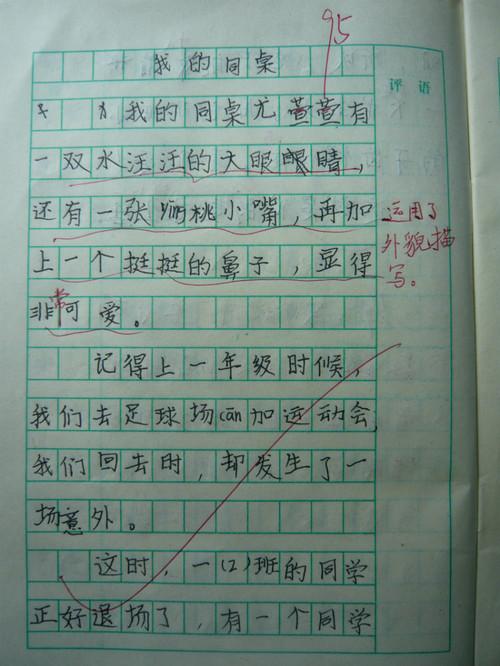 95
我的同桌
评语
我的同桌尤萱萱有
一双水汪汪的大眼眼睛，
还有一张yīng桃小嘴，再加
运用了
上一个挺挺的鼻子，显得
外貌描
写。
非常可爱。
记得上一年级时候，
我们去足球场cān加运动会，
我们回去时，却发生了一
场意外。
这时，一(2)班的同学
正好退场了，有一个同学